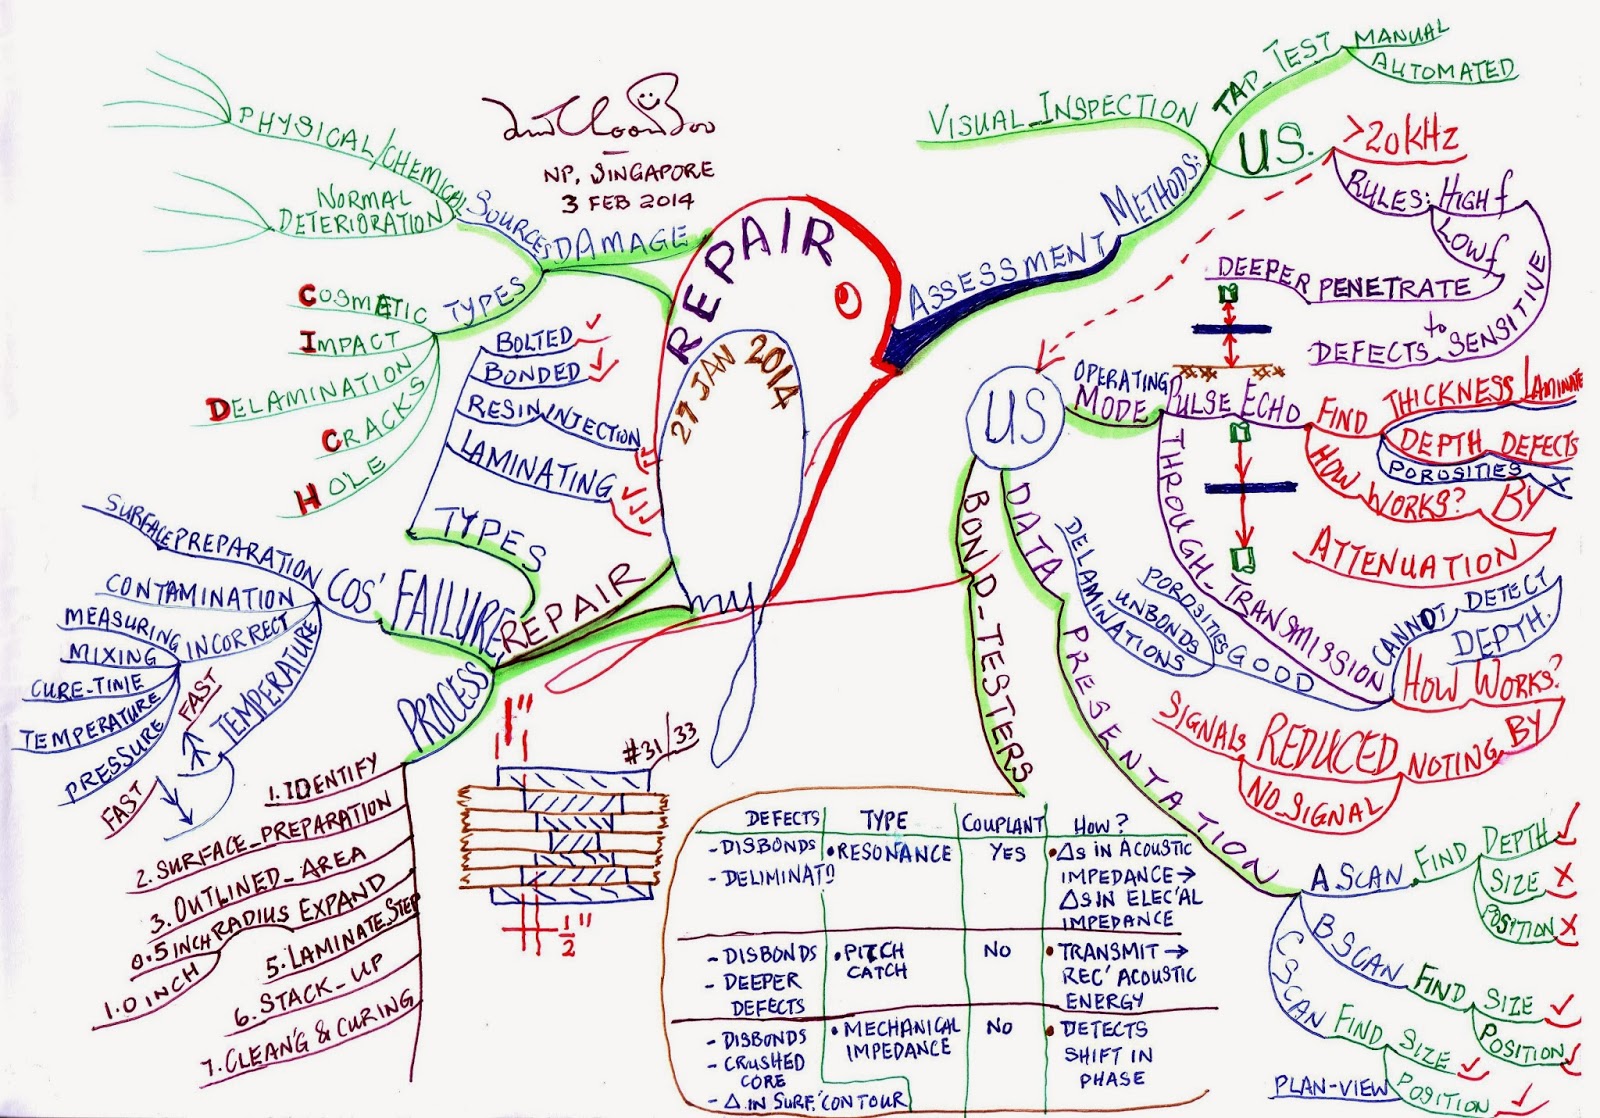 REPAIR
27 JAN 2014
NP, SINGAPORE
3 FEB 2014
DAMAGE
SOURCES
PHYSICAL/CHEMICAL
NORMAL
DETERIORATION
TYPES
COSMETIC
IMPACT
DELAMINATION
CRACKS
HOLE
REPAIR
TYPES
BOLTED
BONDED
RESIN INJECTION
LAMINATING
COS' FAILURE
SURFACE PREPARATION
CONTAMINATION
INCORRECT
MEASURING
MIXING
CURE-TIME
TEMPERATURE
PRESSURE
TEMPERATURE
FAST
FAST
PROCESS
1. IDENTIFY
2. SURFACE_PREPARATION
3. OUTLINED_AREA
RADIUS EXPAND
0.5 INCH
1.0 INCH
5. LAMINATE_STEP
6. STACK_UP
7. CLEAN'G & CURING
1"
#31/33
1/2"
ASSESSMENT
METHODS:
VISUAL_INSPECTION
TAP_TEST
MANUAL
AUTOMATED
US.
>20KHZ
RULES: HIGH f
LOW f
DEEPER PENETRATE
SENSITIVE
to
DEFECTS
US
OPERATING
MODE
PULSE ECHO
FIND
THICKNESS LAMINATE
DEPTH DEFECTS
POROSITIES X
HOW WORKS? BY
ATTENUATION
THROUGH-TRANSMISSION
CANNOT DETECT
DEPTH.
GOOD
POROSITIES
UNBONDS
DELAMINATIONS
HOW WORKS?
BY
NOTING
REDUCED
SIGNALS
NO_SIGNAL
DATA PRESENTATION
A SCAN FIND
DEPTH
SIZE X
POSITION X
B SCAN FIND
SIZE
POSITION
C SCAN FIND
SIZE
POSITION
PLAN-VIEW
BOND-TESTERS
DEFECTS TYPE COUPLANT HOW?
- DISBONDS • RESONANCE YES • Δs IN ACOUSTIC
- DELIMINAT'N IMPEDANCE →
Δs IN ELEC'AL
IMPEDANCE
- DISBONDS • PITCH NO • TRANSMIT →
- DEEPER CATCH REC' ACOUSTIC
DEFECTS ENERGY
- DISBONDS • MECHANICAL NO • DETECTS
- CRUSHED IMPEDANCE SHIFT IN
CORE PHASE
- Δ. IN SURF.' CONTOUR